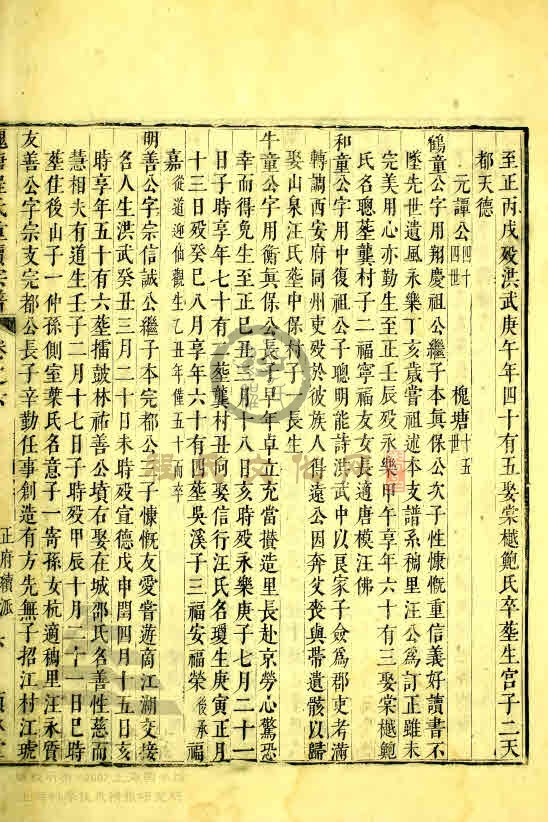 至正丙戌殁洪武庚午年四十有五娶棠樾鮑氏卒塟生宫子二天
都天德
元譚公四十四世 槐塘十五世
鶴童公字用翔慶祖公繼子本真保公次子性慷慨重信義好讀書不
墜先世遺風永樂丁亥歲嘗祖述本支譜系稠里汪公爲訂正雖未
完美用心亦勤生至正壬辰殁永樂甲午享年六十有三娶棠樾鮑
氏名聰塟龔村子二福寧福友女長適唐模汪佛
和童公字用中復祖公子聰明能詩洪武中以良家子僉爲郡吏考滿
轉調西安府同州吏殁於彼族人得遠公因奔父喪與帶遺骸以歸
娶山泉汪氏塟中保村子一長生
牛童公字用衡真保公長子早年卓立充當攢造里長赴京勞心驚恐
幸而得免生至正己丑三月十八日亥時殁永樂庚子七月二十一
日子時享年七十有二塟龔村丑向娶信行汪氏名瓊生庚寅正月
十三日殁癸巳八月享年六十有四塟吳溪子三福安福榮後承福
嘉從道迎仙觀生乙丑年僅五十而卒
明善公字宗信誠公繼子本完都公次子慷慨友愛嘗遊商江湖交接
名人生洪武癸丑三月二十日未時殁宣德戊申閏四月十五日亥
時享年五十有六塟擂鼓林祐善公墳右娶在城邵氏名善性慈而
慧相夫有道生壬子二月十七日子時殁甲辰十月二十一日巳時
塟住後山子一仲孫側室葉氏名意子一寄孫女杭適稠里汪永質
友善公字宗支完都公長子辛勤任事創造有方先無子招江村江琥
正府續派